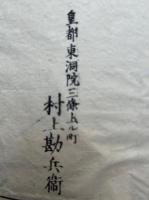 皇都東洞院三條上ル町
村上勘兵衛